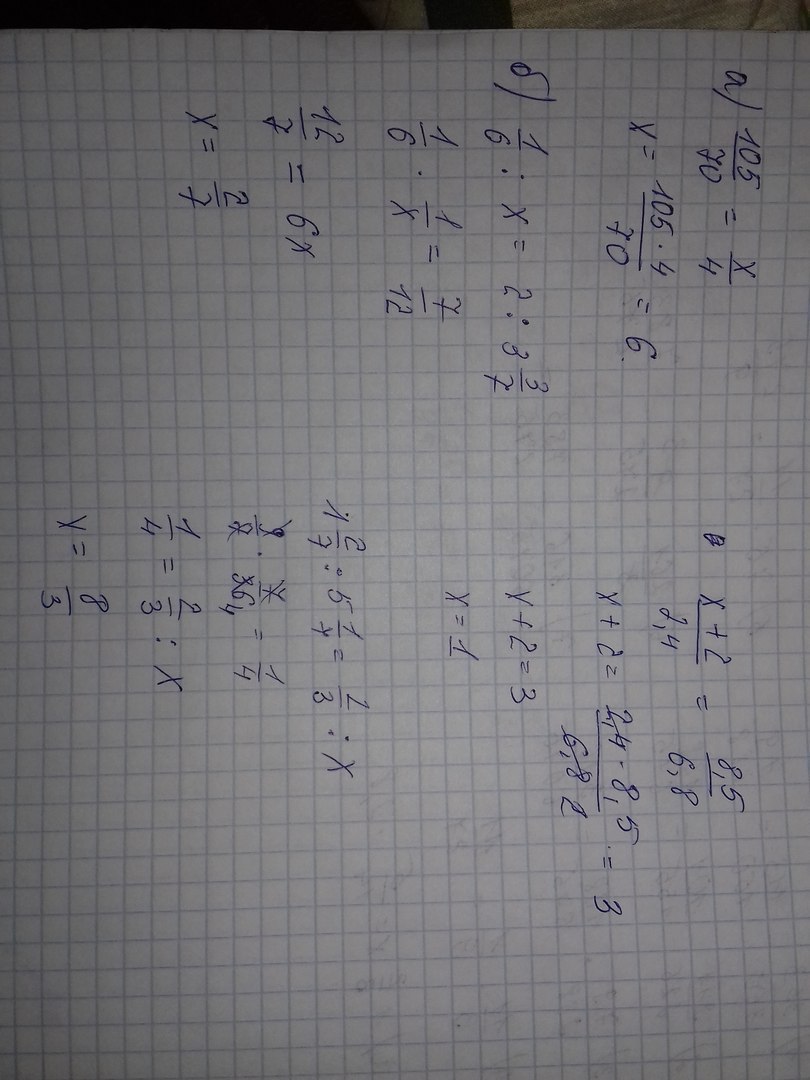 а) 105/70 = x/4
x = 105·4/70 = 6
б) 1/6 : x = 2 : 3 3/7
1/6 · 1/x = 7/12
12/7 = 6x
x = 2/7
x+2/2,4 = 8,5/6,8
x+2 = 2,4·8,5/6,8 = 3
x+2=3
x=1
1 2/7 : 5 1/7 = 2/3 : x
9/7 · 7/36 4 = 1/4
1/4 = 2/3 : x
x = 8/3